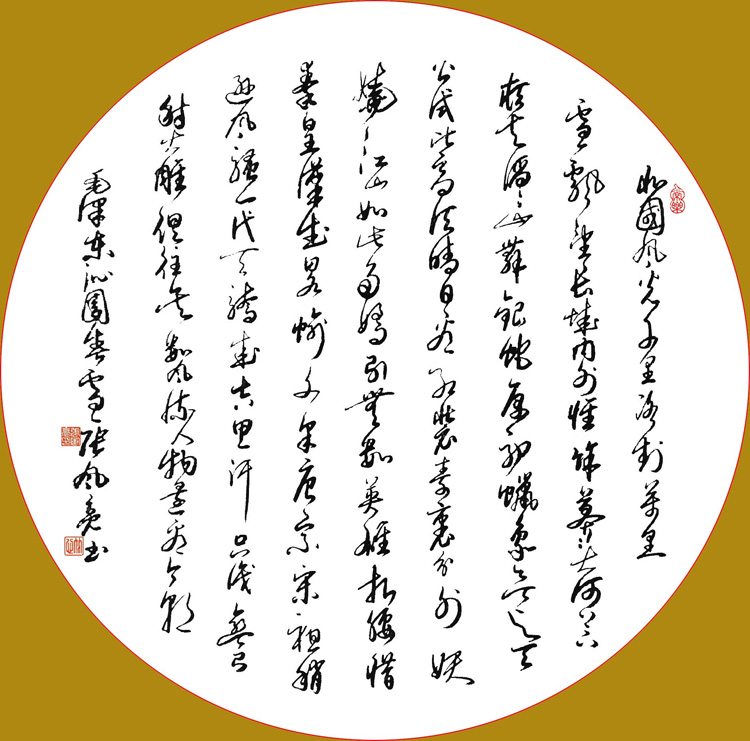 北國风光千里冰封萬里
雪飄望长城内外惟馀莽〻大河上下
頓失滔〻山舞銀蛇原驰蠟象欲与天
公试比高须晴日看红裝素裹分外妖
嬈江山如此多嬌引無數英雄折腰惜
秦皇漢武畧输文采唐宗宋祖稍
遜风骚一代天驕成吉思汗只识彎弓
射大雕俱往矣數风流人物还看今朝
毛泽东沁園春雪 张风亮书